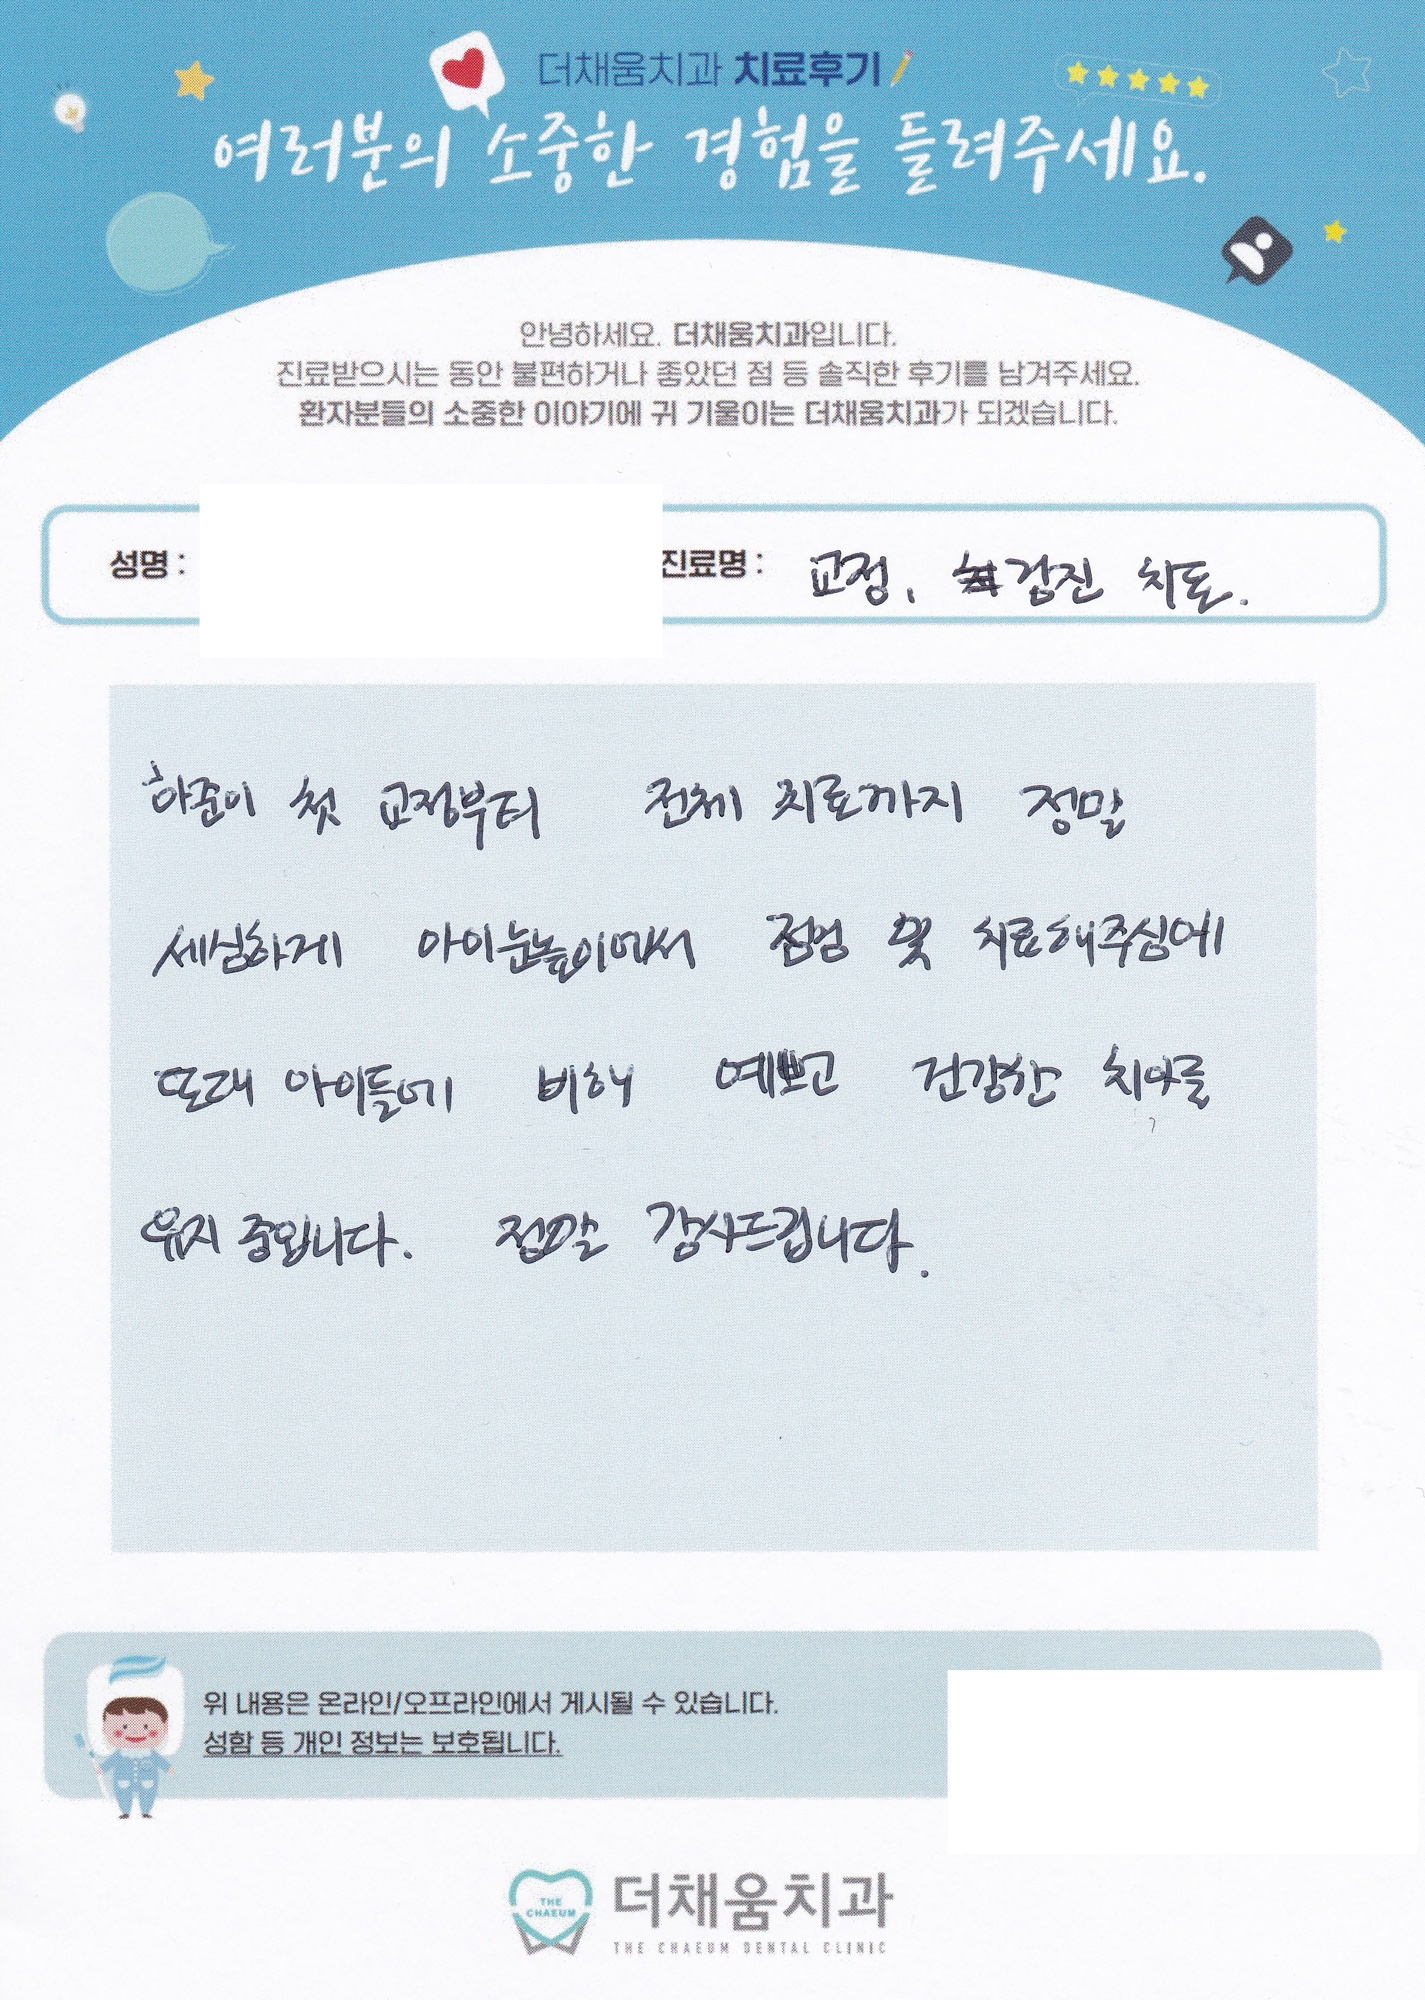 더채움치과 치료후기
여러분의 소중한 경험을 들려주세요.
안녕하세요. 더채움치과입니다.
진료받으시는 동안 불편하거나 좋았던 점 등 솔직한 후기를 남겨주세요.
환자분들의 소중한 이야기에 귀 기울이는 더채움치과가 되겠습니다.
성명 : 진료명 : 교정, 검진 치료.
하준이 첫 교정부터 전체 치료까지 정말
세심하게 아이눈높이에서 점검 및 치료해주심에
또래 아이들에 비해 예쁘고 건강한 치아를
유지 중입니다. 정말 감사드립니다.
위 내용은 온라인/오프라인에서 게시될 수 있습니다.
성함 등 개인 정보는 보호됩니다.
THE
CHAEUM
더채움치과
THE CHAEUM DENTAL CLINIC